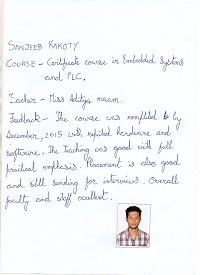 SANJEEB KAKOTY
COURSE - Certificate course in Embedded Systems
and PLC.
Teacher - Miss Aditya maam.
Feedback - The course was completed by
December, 2015 with reputed hardware and
software. The teaching was good with full
practical emphasis. Placement is also good
and still sending for interviews. Overall
faculty and staff excellent.